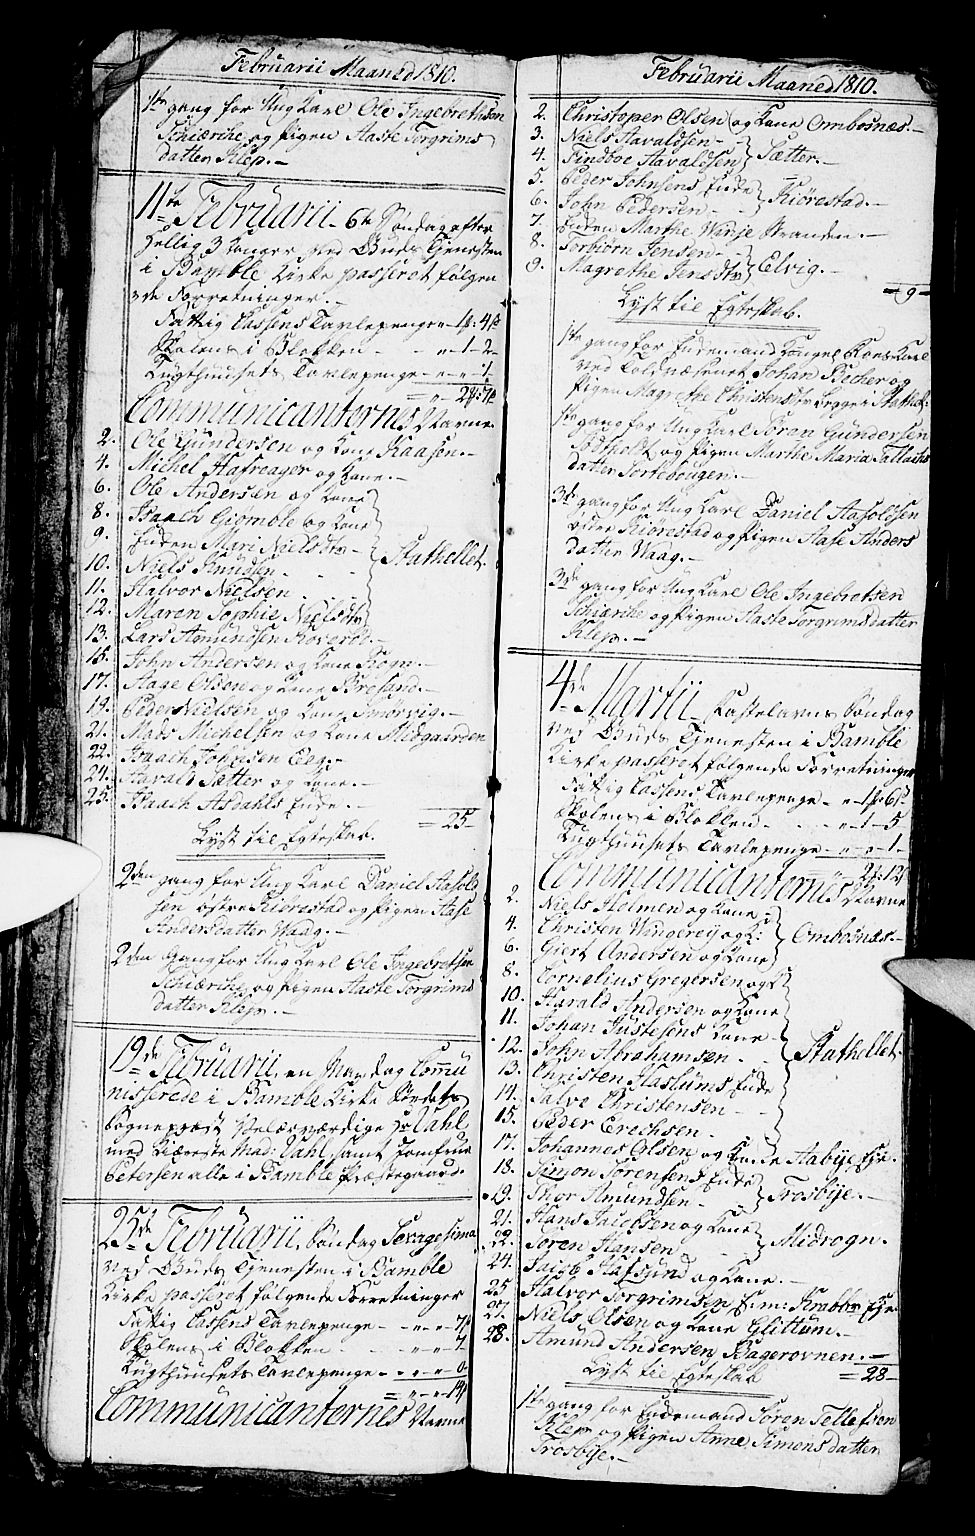 Februarii Maaned 1810.
1te gang for Ung Karl Ole Ingebrethsen
Schiærche og pigen Aaste Torgrims
datter Klep.-
11te Februarii 6te Søndag efter
hellig 3 Konger ved Guds Tjenesten
i Bamble Kirke passeret følgen
de Forretninger.-
Fattig Cassens Tavlepenge
Skolens i Blokken - 1-2-
Tugthuusets Tavlepenge
Communicanternes Navne
2. Ole Gundersen og Kone Kaasen.-
4. Michel Hafreager og Kone.-
6. Ole Andersen og Kone
8. Isaach Giømble og Kone
9. Enken Mari Nielsdtr
10. Niels Knudsen.
Stathellet.
11. Halvor Nielsen
12. Maren Sophie Nielsdtr
13. Lars Amundsen
15. John Andersen og Kone Rogn.-
17. Aage Olsen og Kone Breland.-
19. Peder Nielsen og Kone Smørvig.-
21. Mads Michelsen og Kone Midgaarden
22. Isaach Johnsen Eeg.-
24. Harald Sætter og Kone.-
25. Isaach Asdahls Enke.-
=25-
Lyst til Egteskab.
2den gang for Ung Karl Daniel Aasold
sen østre Kiørestad og Pigen Aase
Andersdatter Vaag.-
2den Gang for Ung Karl Ole Ingebretsen
Schiærche og pigen Aaste Torgrims
datter Klep.-
19de Februarii, en Mandag Commu
nisserede i Bamble Kirke Stedets
Sogneprest Velærværdige Hr Vahl
med Kiæreste Mad: Vahl, samt Jomfrue
Petersen alle i Bamble Præstegaard.
25de Februarii, Søndag Sexagesima
ved Guds Tjenesten i Bamble
Kirke passeret følgende Forretninger
Fattig Cassens Tavlepenge
Skolens i Blokken
Tugthuusets Tavlepenge
Communicanternes Navne
Februarii Maaned 1810.
2. Christoper Olsen og Kone Ombosnæs.-
3. Niels Aavaldsen-
4. Findboe Aavaldsen
Sætter.-
5. Peder Johnsens Enke
6. John Pedersen-
Kiørestad.-
7. Enken Marthe Vadje Stranden.-
8. Torbiørn Jensen-
9. Magrethe Jensdtr
Elvig.-
=9=
Lyst til Egteskab.
1te gang for Enkemand Konges Roers Karl
ved Toldvæsenet Johan Becher og
pigen Magrethe Christensdtr begge i Stathel:
1te gang for Ung Karl Søren Gundersen
og pigen Marthe Maria Tallachs
datter Tortebougen.-
3de gang for Ung Karl Daniel Aasoldsen
Kiørestad og pigen Aase Anders
datter Vaag.-
3de gang for Ung Karl Ole Ingebretsen
Schiærche og pigen Aaste Torgrimsdatter
Klep.-
4de Martii Fastelavns Søndag
ved Guds Tjenesten i Bamble
Kirke passeret følgende Forretninger
Fattig Cassens Tavlepenge
Skolens i Blokken - 1-5
Tugthuusets Tavlepenge
Communicanternes Navne
2. Niels Holmen og Kone
4. Christen Vingerej og K:
6. Giert Andersen og Kone
Ombosnæs.-
8. Cornelius Gregersen og K
10. Harald Andersen og Kone
11. Johan Justesens Kone
12. John Abrahamsen.
13. Christen Haslums Enke
Stathellet.
14. Salve Christensen-
15. Peder Erechsen.
17. Johannes Olsen og Kone Aabye Eje.
18. Simon Sørensens Enke
19. Thor Amundsen.
Trosbye.-
21. Hans Jacobsen og Kone
22. Søren Hansen
Midrogn.
24. Jacob Hafsund og Kone.-
25 Halvor Torgrimsen, E: m: Krabbes Eje
27. Niels Olsen og Kone Glittum.-
28. Amund Andersen Bagerovnen.-
=28-
Lyst til Egteskab
1te gang for Enkemand Søren Tellefsen
Klep og Pigen Anne Simonsdatter
Trosbye.-